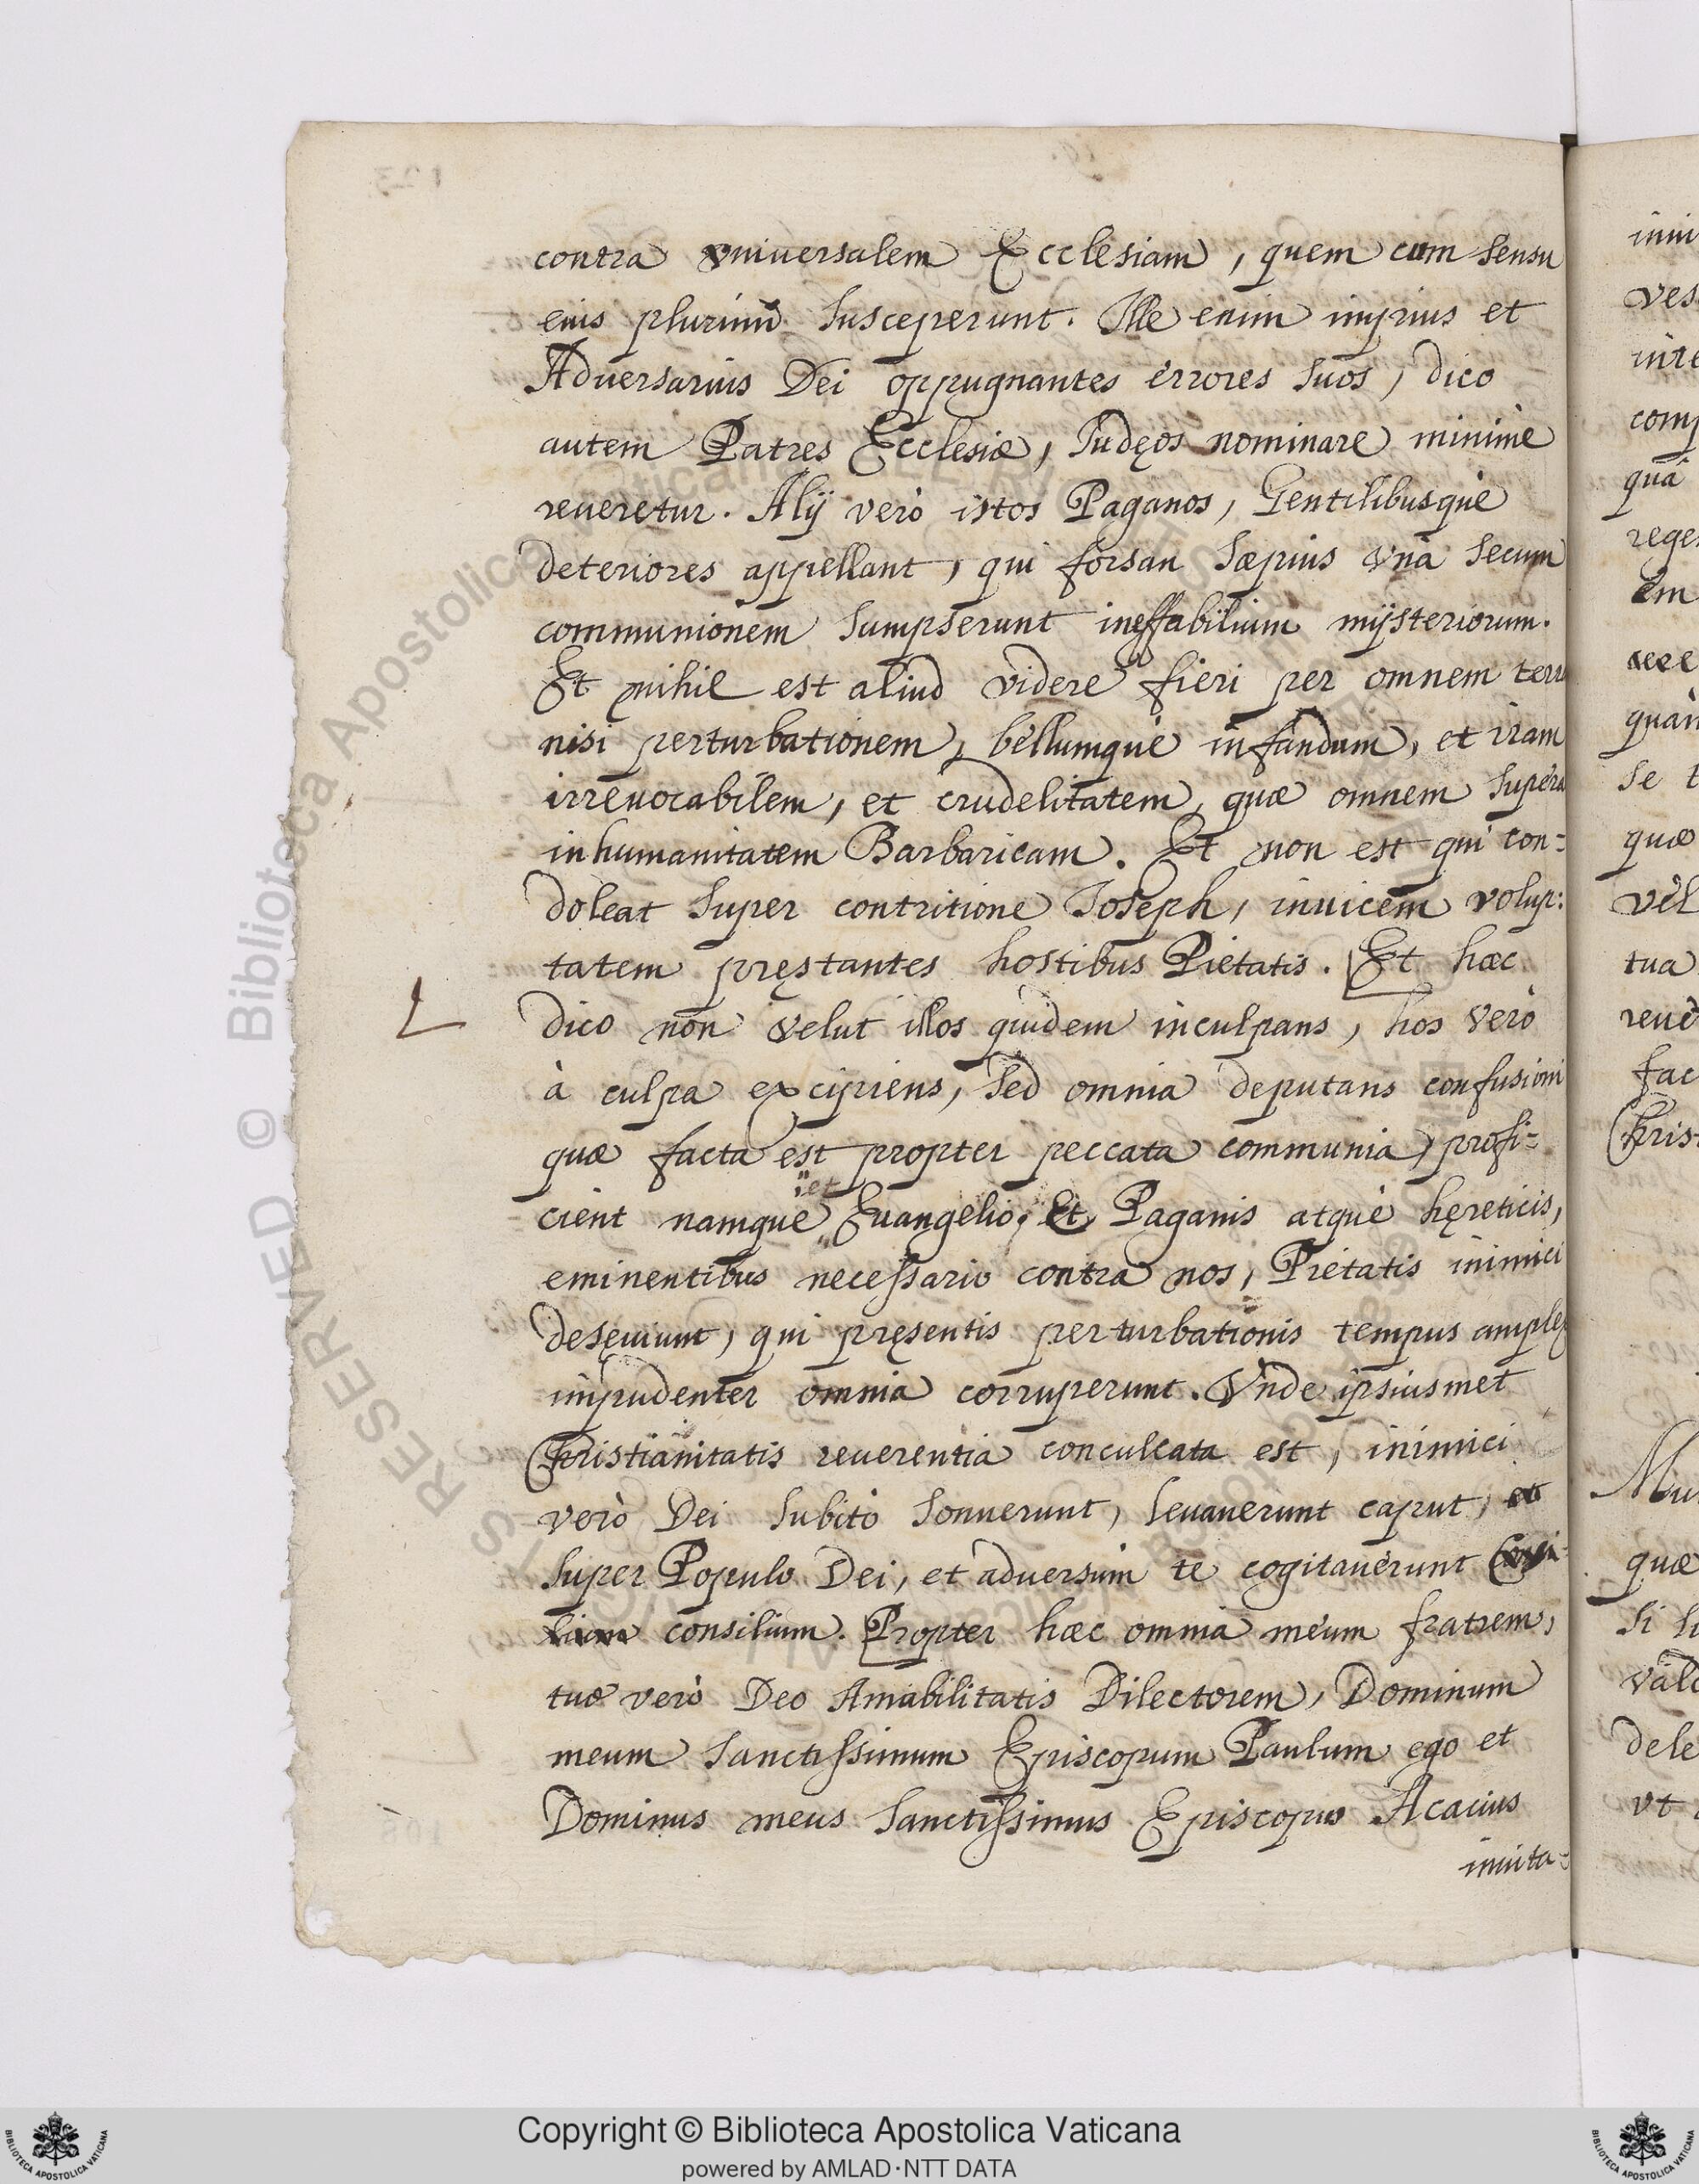 contra vniuersalem Ecclesiam, quem cum sensu
eius plurimũ susceperunt. Ille enim impius et
Aduersarius Dei oppugnantes errores suos, dico
autem Patres Ecclesiæ, Iudęos nominare minimè
reueretur. Alij verò istos Paganos, Gentilibusquè
deteriores appellant, qui forsan sæpius vnà secum
communionem sumpserunt ineffabilium mijsteriorum.
Et nihil est aliud videre fieri per omnem
nisi perturbationem, bellumquè infandum, et iram
irreuocabilem, et crudelitatem, quæ omnem supera
inhumanitatem Barbaricam. Et non est qui con=
doleat super contritione Ioseph, inuicem volup:
tatem pręstantes hostibus Pietatis. Et hæc
dico non velut illos quidem inculpans, hos verò
à culpa excipiens, sed omnia deputans confusioni
quæ facta est propter peccata communia, profi=
cient namque et Euangelio, Et Paganis atquè hęreticis,
eminentibus necessario contra nos, Pietatis inimici
desęuiunt, qui pręsentis perturbationis tempus
impudenter omnia corruperunt. Vnde ipsiusmet
Christianitatis reuerentia conculcata est, inimici
verò Dei subitò sonuerunt, leuauerunt caput, et
super Populo Dei, et aduersùm te cogitauerunt
consilium. Propter hæc omnia meum fratrem,
tuæ verò Deo Amabilitatis Dilectorem, Dominum
meum sanctissimum Episcopum Paulum ego et
Dominus meus sanctissimus Episcopus Acacius
inuita=
123
L
inui
ves
inte
comp
quã
reges
em
quàn
se t
quæ
vel
tua
reue
fac
Chris
Mu
quæ
si li
vald
dele
vt
© Biblioteca Apostolica Vaticana
RESERVED
Copyright © Biblioteca Apostolica Vaticana
powered by AMLAD·NTT DATA
BIBLIOTECA APOSTOLICA VATICANA
BIBLIOTECA APOSTOLICA VATICANA